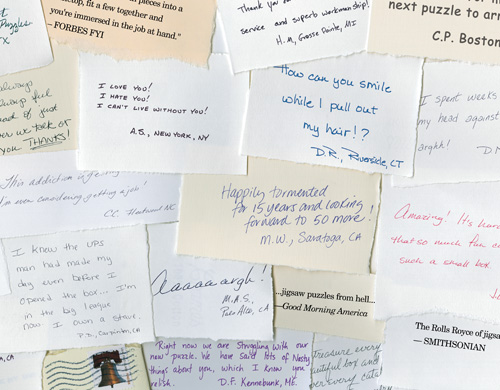 pieces into a
tabletop, fit a few together and
you're immersed in the job at hand."
– FORBES FYI
Thank you
service and superb workmanship!
H.M., Grosse Pointe, MI
next puzzle to
C.P. Boston
always
always
and if just
THANKS!
I LOVE YOU!
I HATE YOU!
I CAN'T LIVE WITHOUT YOU!
A.S., NEW YORK, NY
How can you smile
while I pull out
my hair!?
D.R., Riverside, CT
I spent weeks
my head against
arghh!
This addiction is
I'm even considering getting a job!
CC.
Happily tormented
for 15 years and looking
forward to 50 more!
M.W., Saratoga, CA
Amazing! It's hard
that so much fun
such a small box.
I knew the UPS
man had made my
day even before I
opened the box... I'm
in the big league
now. I own a Stave.
Aaaaaargh!
M.A.S.,
Palo Alto, CA
...jigsaw puzzles from hell...
—Good Morning America
The Rolls Royce of jigsaw
— SMITHSONIAN
, CA
Right now we are struggling with our
new puzzle. We have said lots of nasty
things about you, which I know you
relish. D.F. Kennebunk, ME.
Treasure every
beautiful box and
every